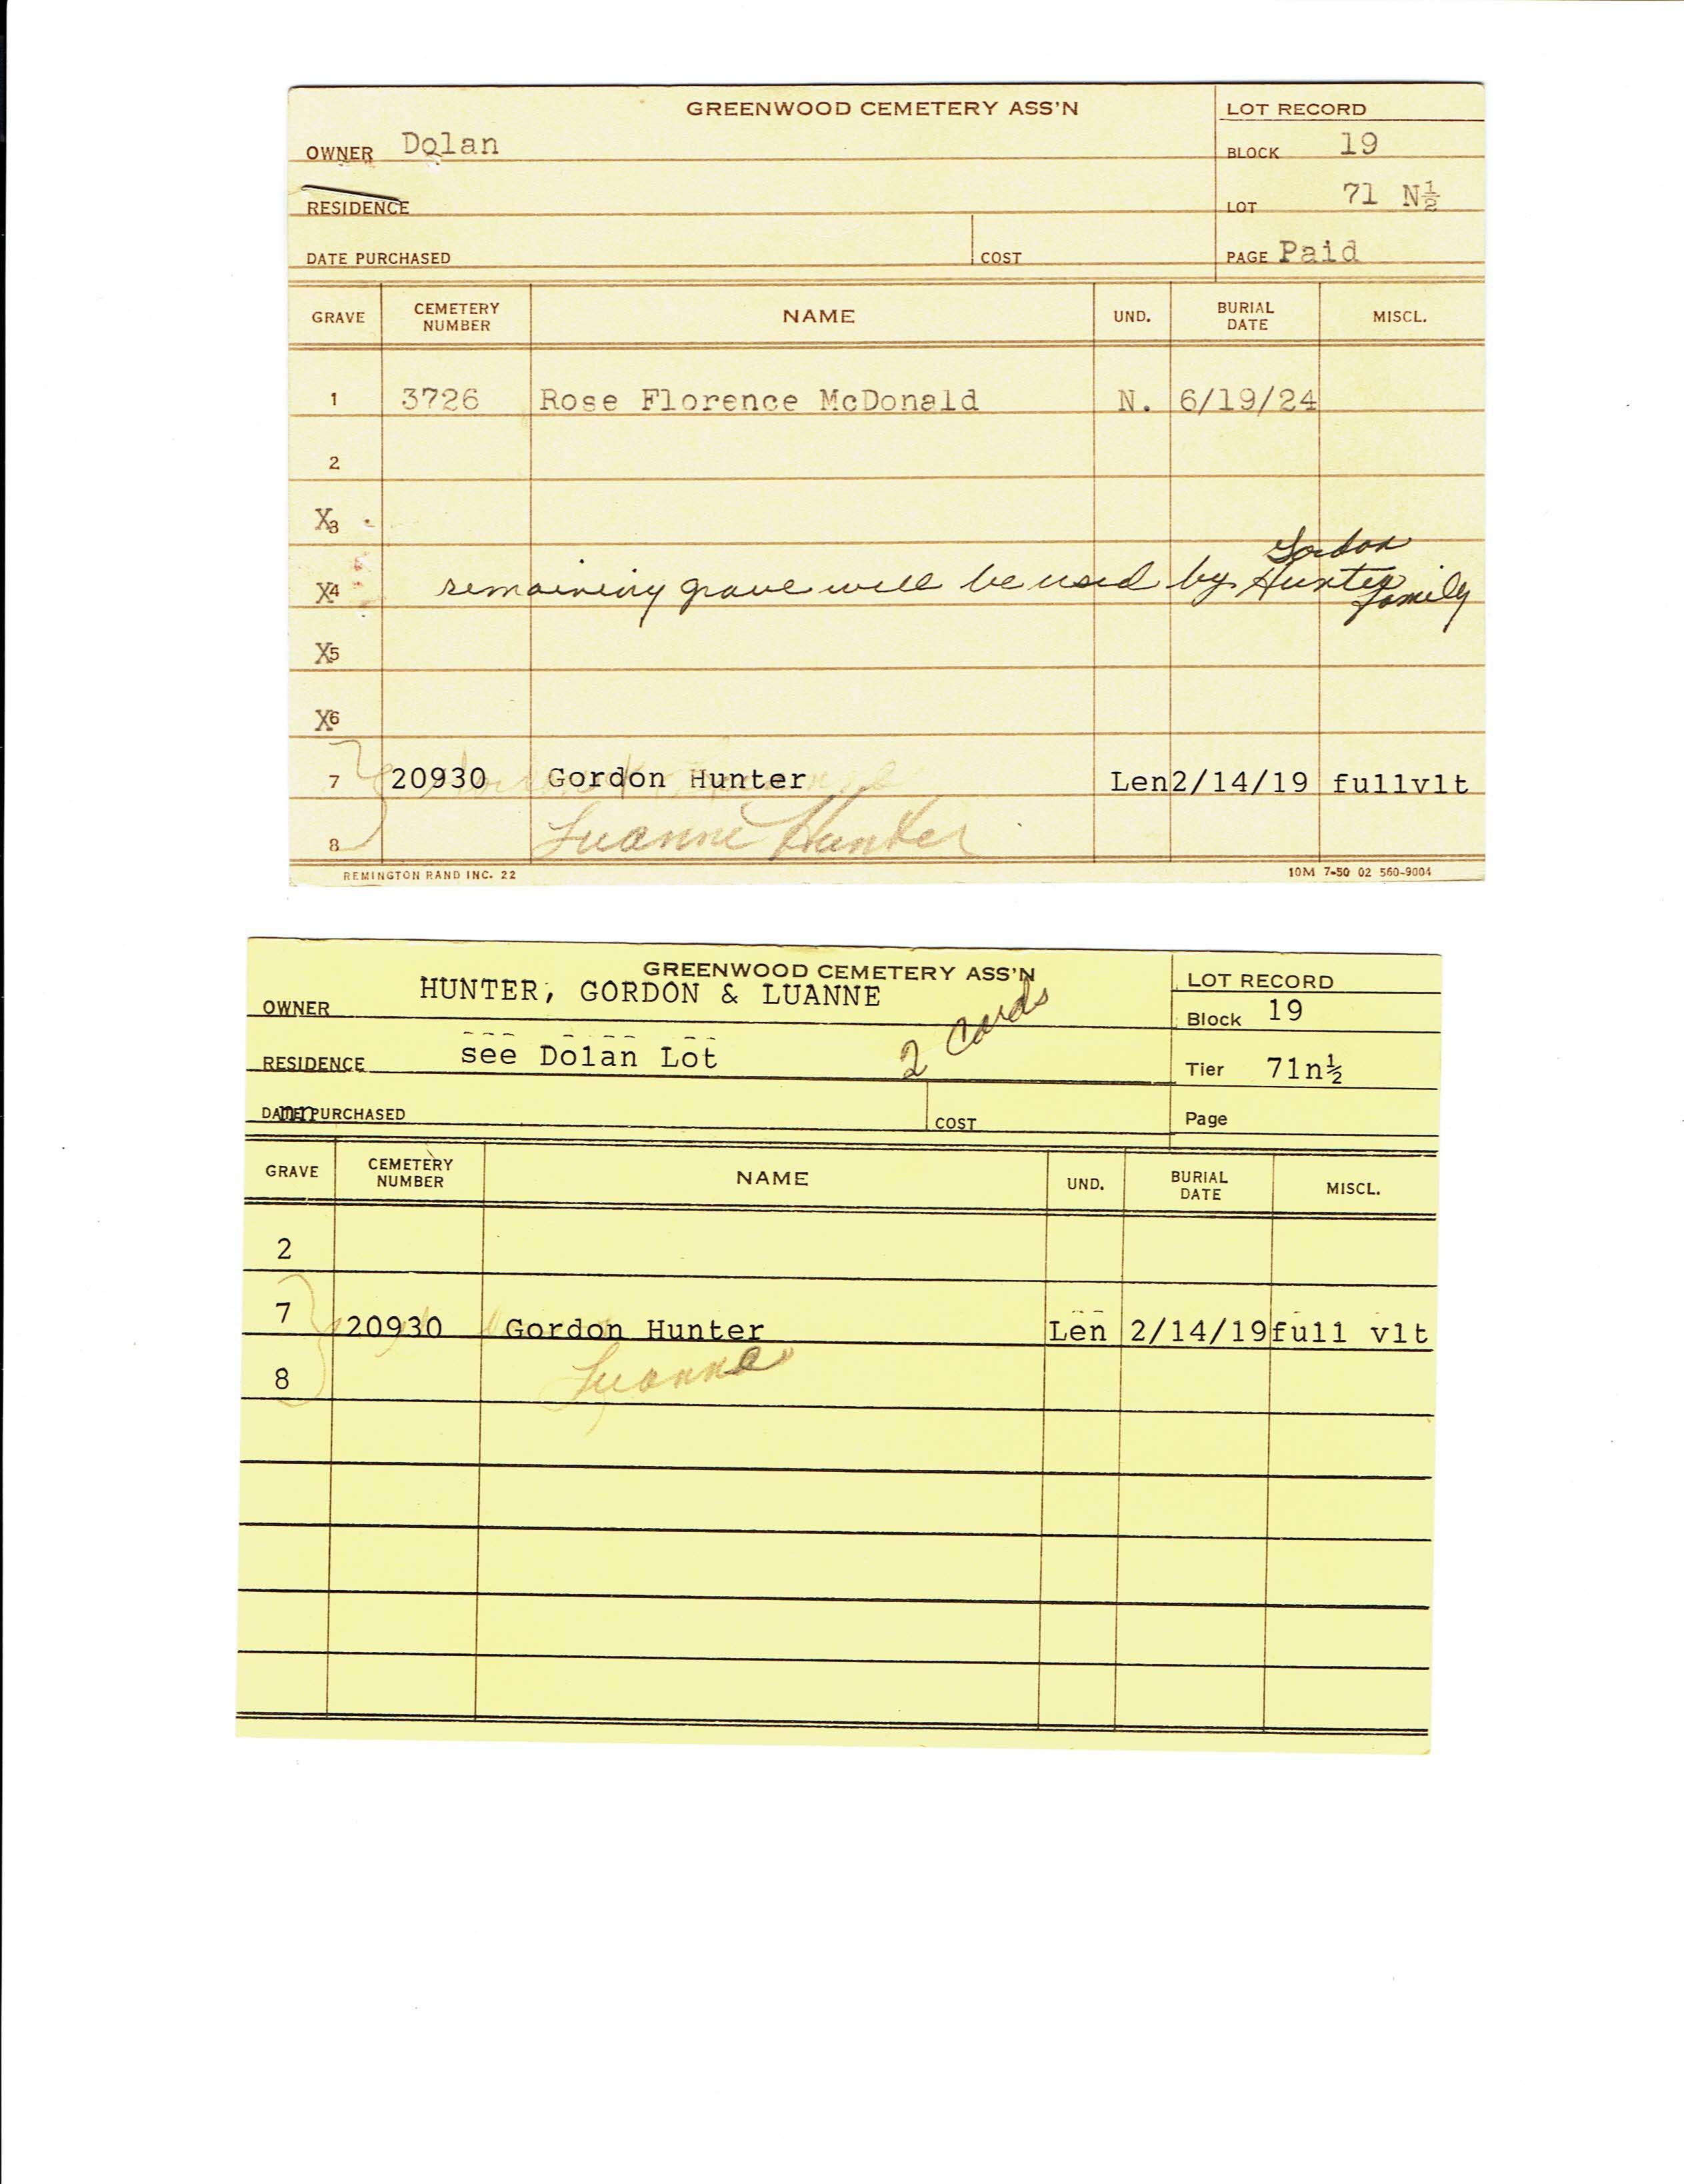 GREENWOOD CEMETERY ASS'N
LOT RECORD
OWNER Dolan
BLOCK 19
RESIDENCE
LOT 71 N½
DATE PURCHASED
COST
PAGE Paid
GRAVE CEMETERY NUMBER NAME UND. BURIAL DATE MISCL.
1 3726 Rose Florence McDonald N. 6/19/24
2
X3
X4 remaining grave will be used by Gordon Hunter family
X5
X6
7 20930 Gordon Hunter Len2/14/19 fullvlt
8 Luanne Hunter
REMINGTON RAND INC. 22
10M 7-50 02 560-9004
GREENWOOD CEMETERY ASS'N
LOT RECORD
OWNER HUNTER, GORDON & LUANNE
2 cards
Block 19
RESIDENCE see Dolan Lot
Tier 71n½
DATE PURCHASED
COST
Page
GRAVE CEMETERY NUMBER NAME UND. BURIAL DATE MISCL.
2
7 20930 Gordon Hunter Len 2/14/19 full vlt
8 Luanne